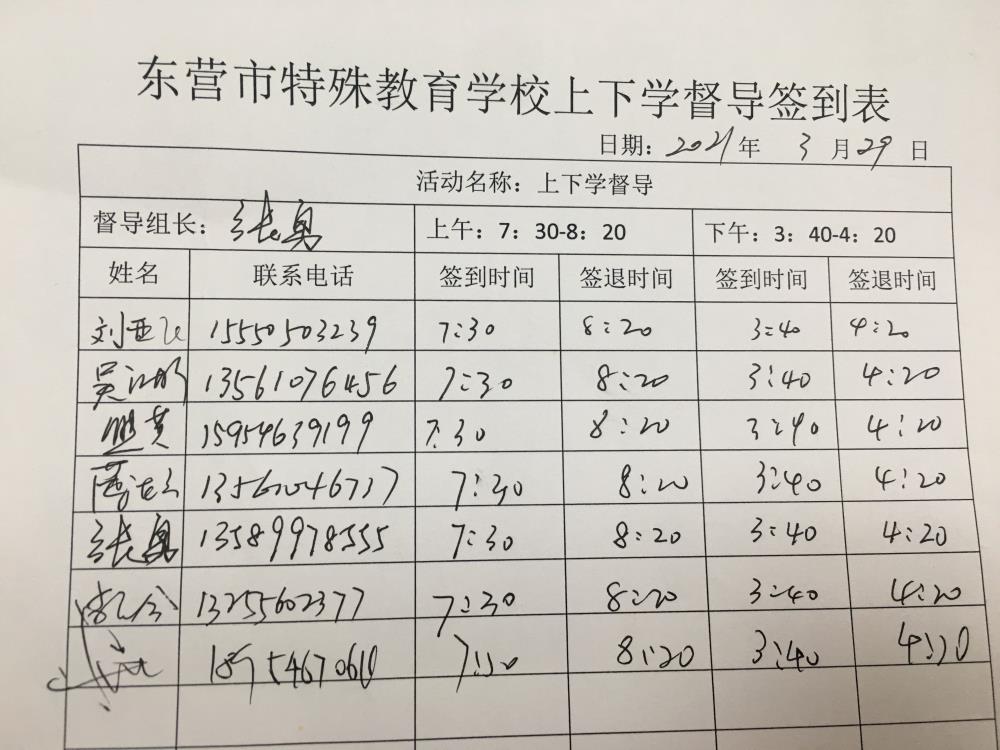 东营市特殊教育学校上下学督导签到表
日期：2021年 3月29日
活动名称：上下学督导
督导组长：张勇 上午：7：30-8：20 下午：3：40-4：20
姓名 联系电话 签到时间 签退时间 签到时间 签退时间
刘亚飞 15550503239 7:30 8:20 3:40 4:20
吴江明 13561076456 7:30 8:20 3:40 4:20
15954639199 7:30 8:20 3:40 4:20
7:30 8:20 3:40 4:20
张勇 13589978555 7:30 8:20 3:40 4:20
13255602377 7:30 8:20 3:40 4:20
7:30 8:20 3:40 4:20